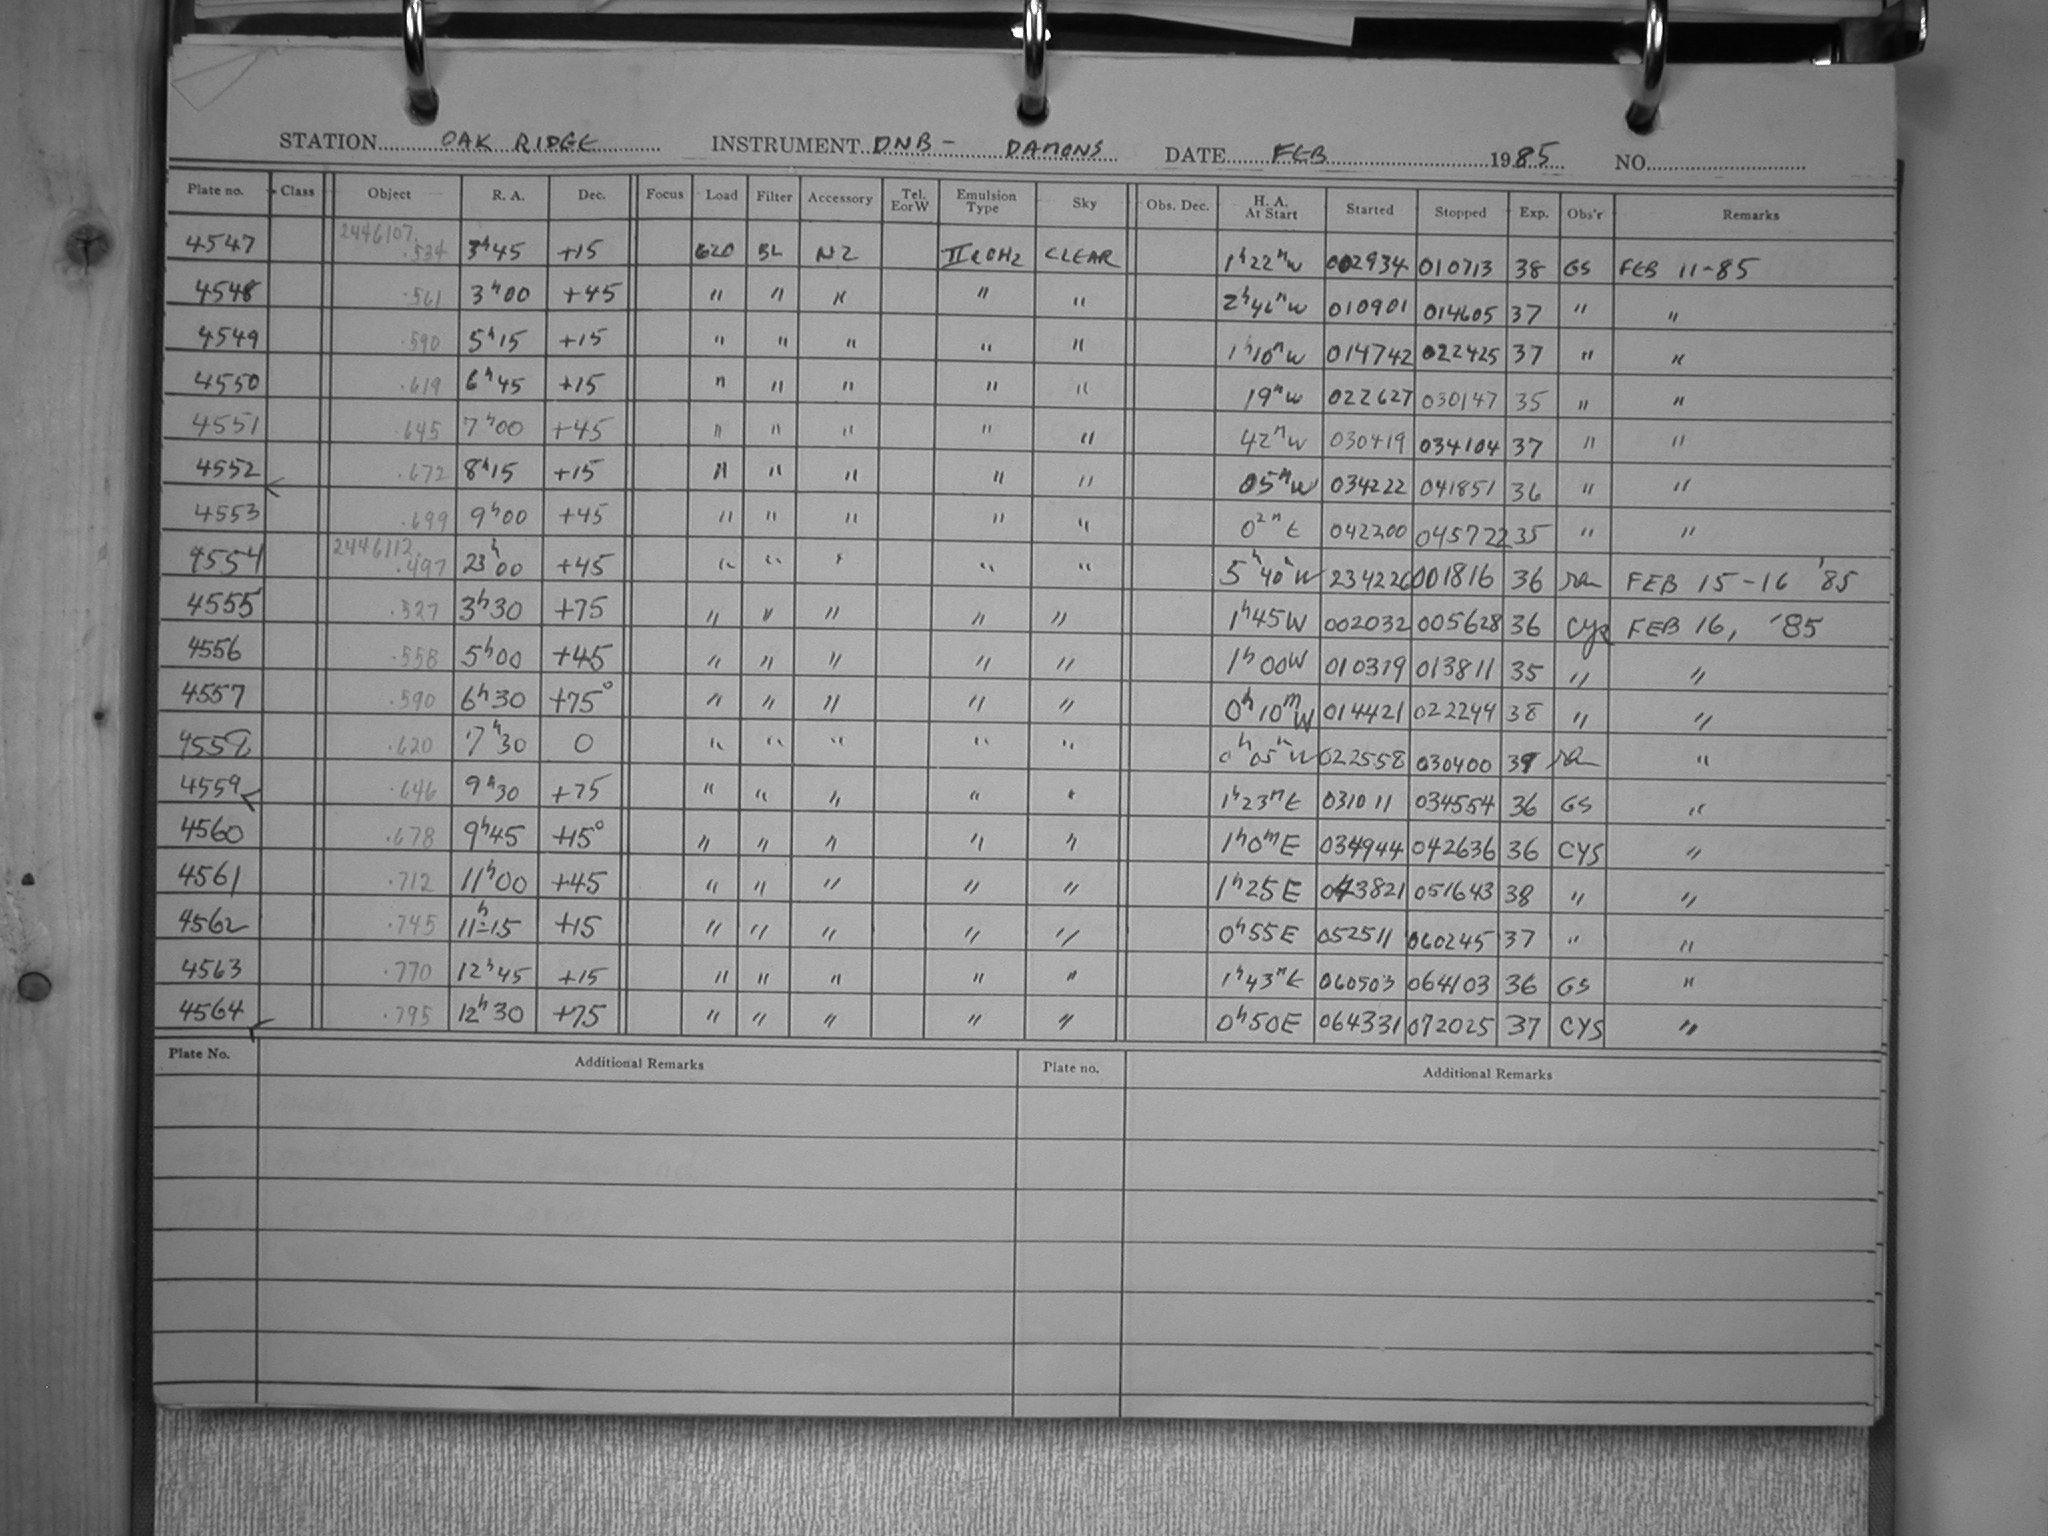 STATION OAK RIDGE INSTRUMENT DNB - DAMONS DATE FEB 1985 NO.
Plate no. Class Object R. A. Dec. Focus Load Filter Accessory Tel. E or W Emulsion Type Sky Obs. Dec. H. A. At Start Started Stopped Exp. Obs'r Remarks
4547 2446107.534 3h45 +15 620 BL N2 IIaOH2 CLEAR 1h22mW 002934 010713 38 GS FEB 11-85
4548 .561 3h00 +45 " " " " " 2h46mW 010901 014605 37 " "
4549 .590 5h15 +15 " " " " " 1h10mW 014742 022425 37 " "
4550 .619 6h45 +15 " " " " " 19mW 022627 030147 35 " "
4551 .645 7h00 +45 " " " " " 42mW 030419 034104 37 " "
4552 .672 8h15 +15 " " " " " 05mW 034222 041851 36 " "
4553 .699 9h00 +45 " " " " " 02mE 042200 045722 35 " "
4554 2446112.497 23h00 +45 " " " " " 5h40mW 234226 001816 36 FEB 15-16 '85
4555 .527 3h30 +75 " " " " " 1h45W 002032 005628 36 CYS FEB 16, '85
4556 .558 5h00 +45 " " " " " 1h00W 010319 013811 35 " "
4557 .590 6h30 +75° " " " " " 0h10mW 014421 022244 38 " "
4558 .620 7h30 0 " " " " " 0h05mW 022558 030400 "
4559 .646 9h30 +75 " " " " " 1h23mE 031011 034554 36 GS "
4560 .678 9h45 +15° " " " " " 1h0mE 034944 042636 36 CYS "
4561 .712 11h00 +45 " " " " " 1h25E 043821 051643 38 " "
4562 .745 11h15 +15 " " " " " 0h55E 052511 060245 37 " "
4563 .770 12h45 +15 " " " " " 1h43mE 060503 064103 36 GS "
4564 .795 12h30 +75 " " " " " 0h50E 064331 072025 37 CYS "
Plate No. Additional Remarks Plate no. Additional Remarks